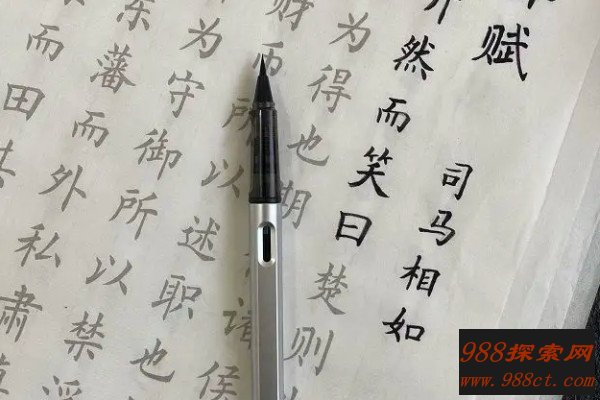 赋
司马相如
然而笑曰楚则
为得也诸侯
财币所以述职也
为守御所以禁淫
东藩而外私肃
而田
988探索网
www.988ct.com